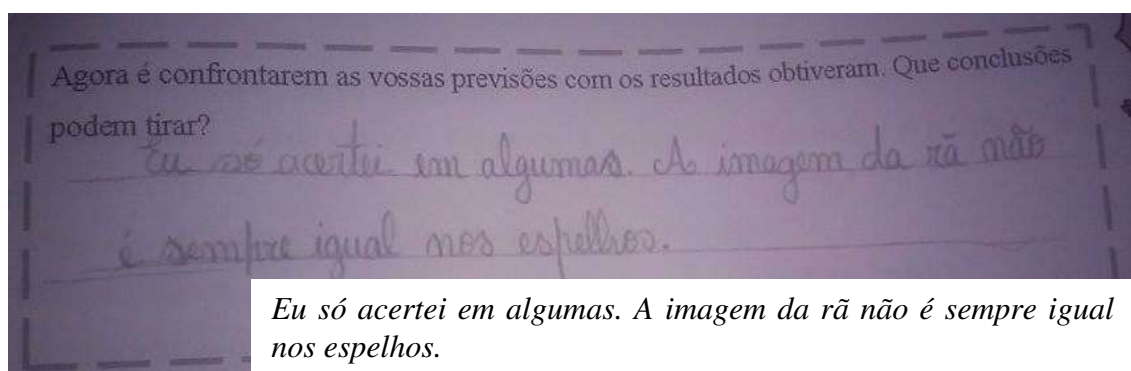 Agora é confrontarem as vossas previsões com os resultados obtiveram. Que conclusões
podem tirar?
Eu só acertei em algumas. A imagem da rã não
é sempre igual nos espelhos.
Eu só acertei em algumas. A imagem da rã não é sempre igual
nos espelhos.